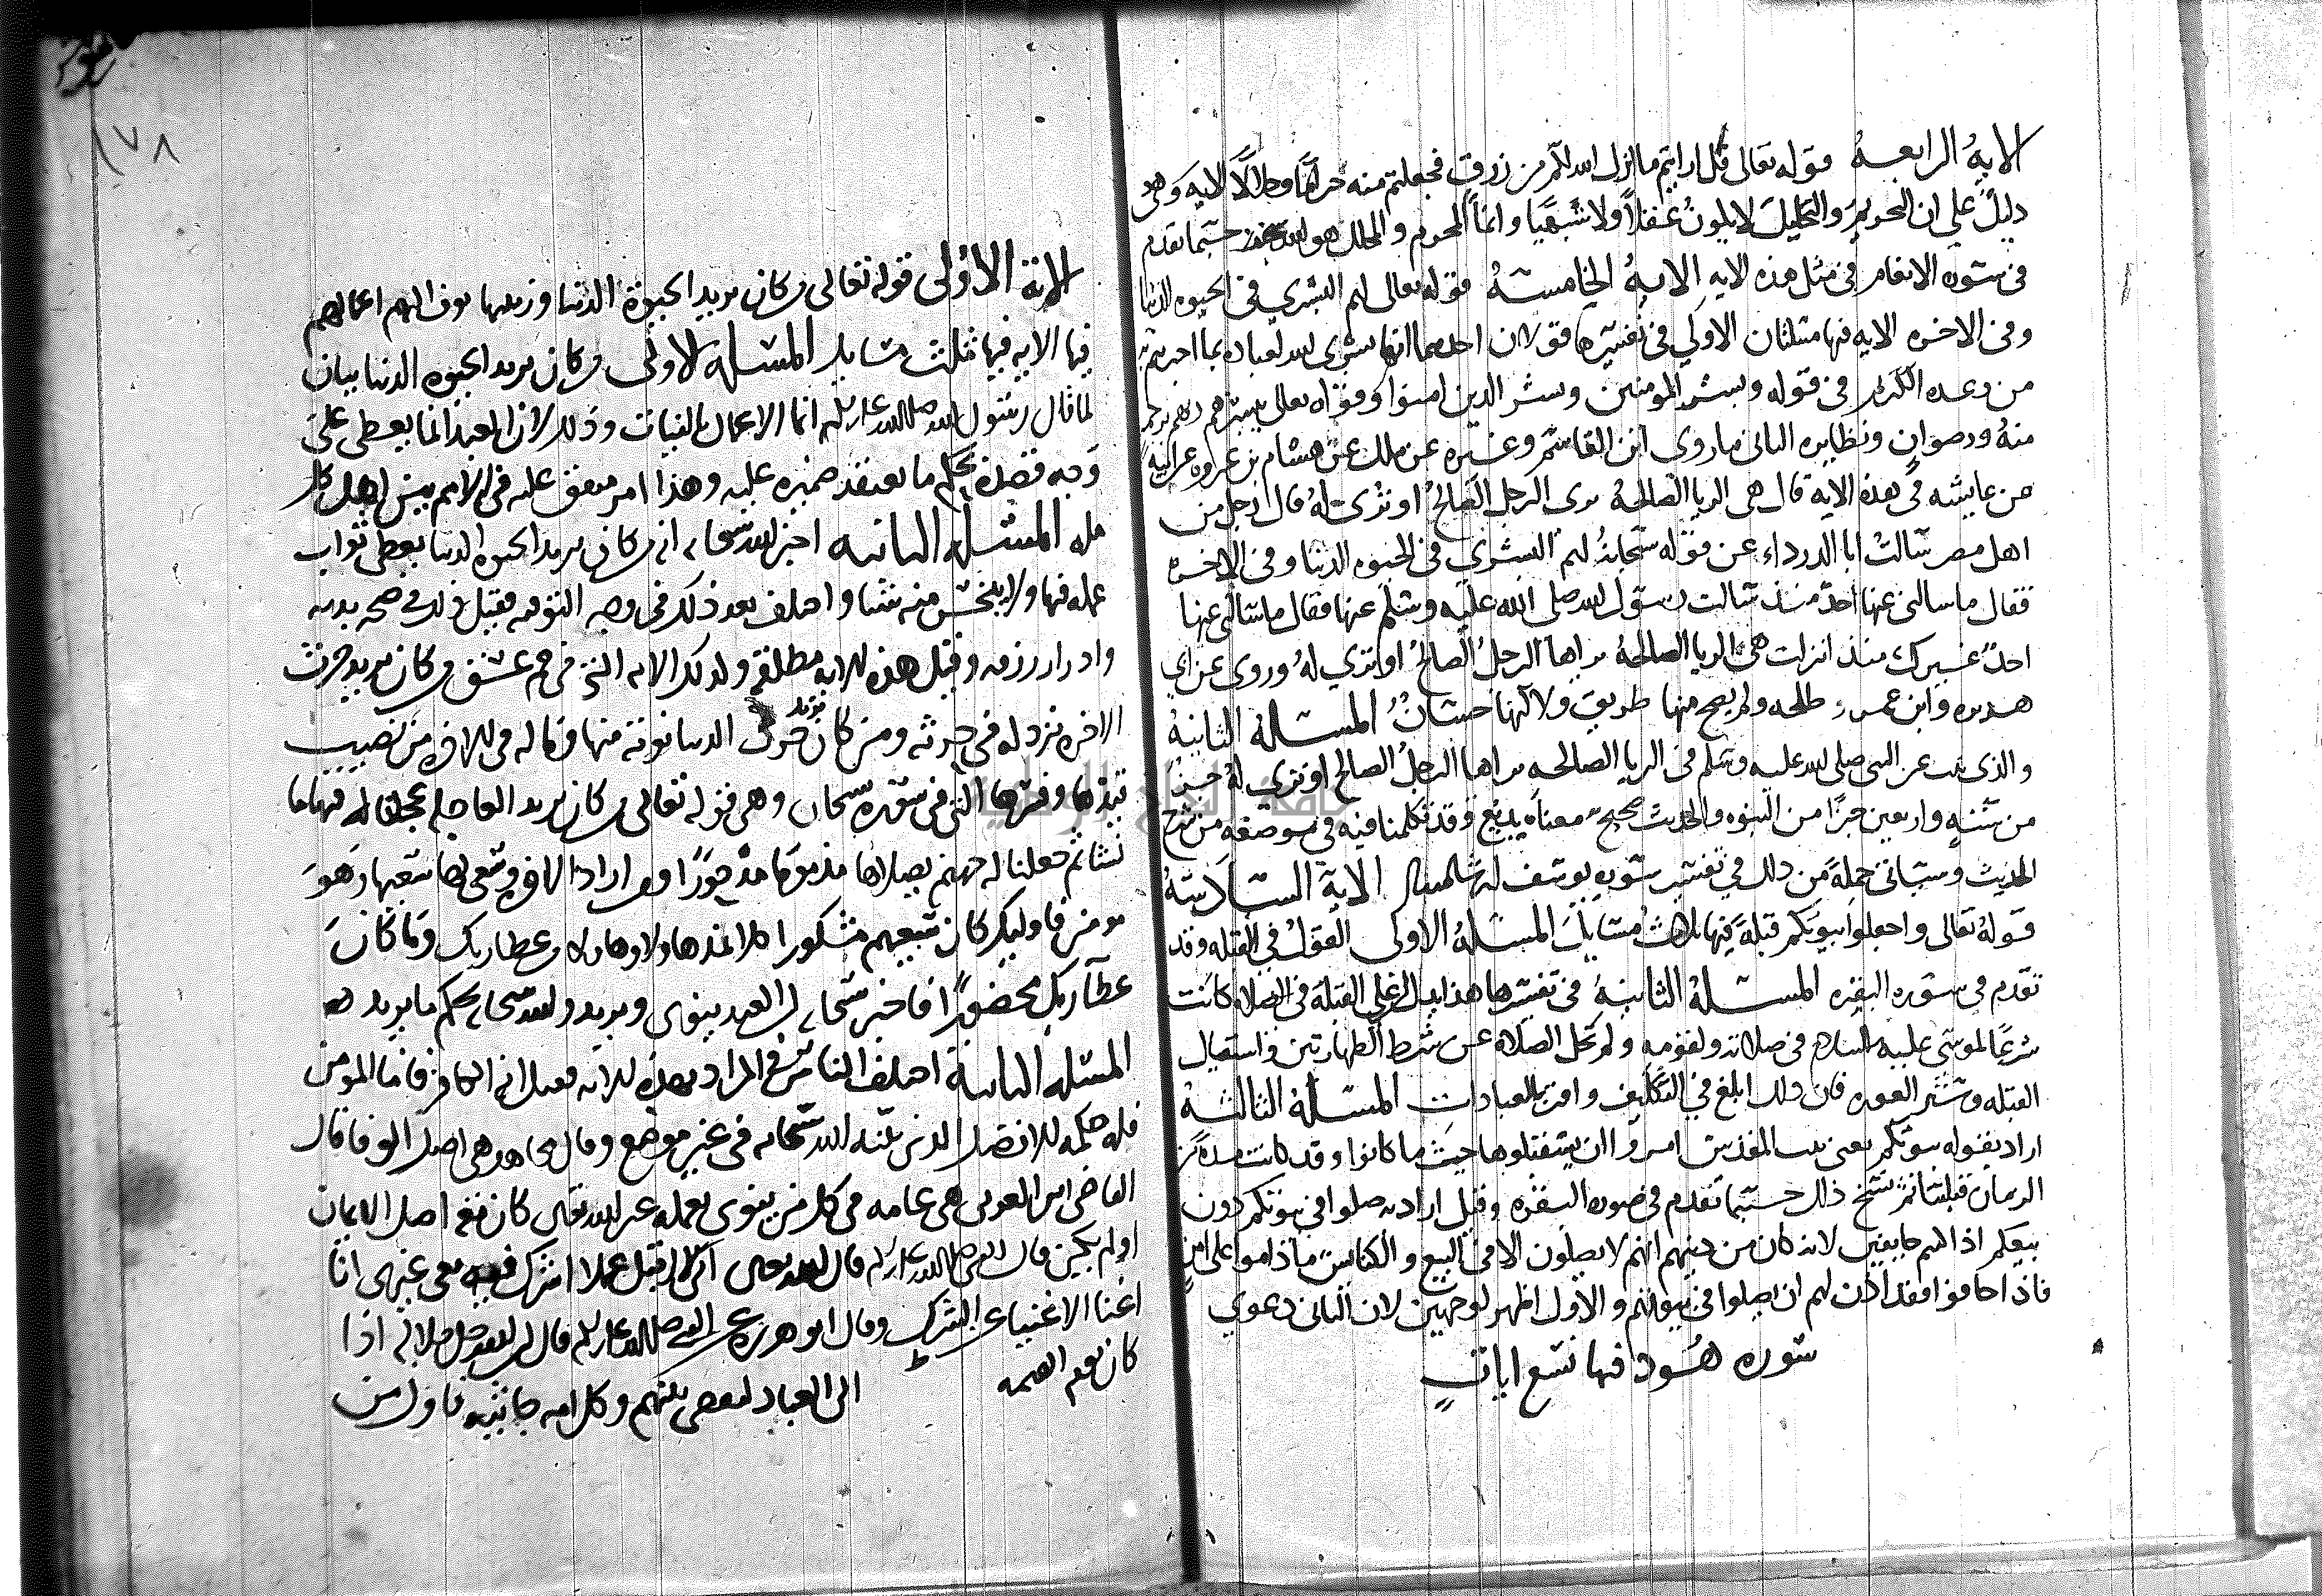 الاية الرابعة قوله تعالى قل ارايتم ما انزل الله لكم من رزق فجعلتم منه حراما وحلالا الاية وهي
دليل على ان التحريم والتحليل لا يكون عقلا ولا تشهيا وانما المحرم والمحلل هو الله حسبما تقدم
في سورة الانعام في مثل هذه الاية الاية الخامسة قوله تعالى لهم البشرى في الحيوة الدنيا
وفي الاخرة الاية فيها مسئلتان الاولى في تفسيرها قولان احدهما انها بشرى الله لعباده بما اخبرهم به
من وعده الكريم في قوله وبشر المومنين وبشر الذين امنوا وقوله تعالى يبشرهم ربهم برحمة
منه ورضوان ونظايره الثاني ما روى ابن القاسم وغيره عن ملك عن هشام بن عروة عن ابيه
عن عايشة في هذه الاية قال هي الريا الصالحة يرى الرجل الصالح او ترى له قال رجل من
اهل مصر سالت ابا الدرداء عن قوله سبحانه لهم البشرى في الحيوة الدنيا وفي الاخرة
فقال ما سالني عنها احد منذ سالت رسول الله صلى الله عليه وسلم عنها فقال ما سالني عنها
احد غيرك منذ انزلت هي الريا الصالحة يراها الرجل الصالح او ترى له وروى عن ابي
هريرة وابن عمر و طلحة ولم يصح منها طريق ولاكنها حسان المسئلة الثانية
والذي ثبت عن النبي صلى الله عليه وسلم في الريا الصالحة يراها الرجل الصالح او ترى له جزء
من ستة واربعين جزا من النبوة والحديث صحيح معناه بديع وقد تكلمنا فيه في موضعه من شرح
الحديث وسياتي جملة من ذلك في تفسير سورة يوسف ان شا الله الاية السادسة
قوله تعالى واجعلوا بيوتكم قبلة فيها ثلاث مسايل المسئلة الاولى القول في القبلة وقد
تقدم في سورة البقرة المسئلة الثانية في تفسيرها هذا يدل على ان القبلة في الصلاة كانت
شرعا لموسى عليه السلام في صلاته ولقومه ولم تخل الصلاة عن شرط الطهارتين واستقبال
القبلة وستر العورة فان ذلك ابلغ في التكليف واوقر للعبادات المسئلة الثالثة
اراد بقوله بيوتكم يعني بيت المقدس امروا ان يستقبلوها حيث ما كانوا وقد كانت مدة من
الزمان قبلتنا ثم نسخ ذلك حسبما تقدم في سورة البقرة وقيل اراد به صلوا في بيوتكم دون
بيعكم اذا كنتم خايفين لانه كان من دينهم انهم لا يصلون الا في البيع والكنايس ما داموا على امن
فاذا خافوا فقد اذن لهم ان يصلوا في بيوتهم والاول اظهر لوجهين لان الثاني دعوى
سورة هود فيها تسع ايات
الاية الاولى قوله تعالى من كان يريد الحيوة الدنيا وزينتها نوف اليهم اعمالهم
فيها الاية فيها ثلث مسايل المسئلة الاولى من كان يريد الحيوة الدنيا بيان
لما قال رسول الله صلى الله عليه وسلم انما الاعمال بالنيات وذلك لان العبد انما يعطى على
وجه قصده بحكم ما يعتقد ضميره عليه وهذا امر متفق عليه في الامم بين اهل كل
ملة المسئلة الثانية اخبر الله سبحانه ان من كان يريد الحيوة الدنيا يعطى ثواب
عمله فيها ولا يبخس منه شيا واختلف بعد ذلك في وجه التوفية فقيل ذلك في صحة بدنه
وادرار رزقه وقيل هذه الاية مطلقة وكذلك الاية التي في حم عسق من كان يريد حرث
الاخرة نزد له في حرثه ومن كان يريد حرث الدنيا نوته منها وما له في الاخرة من نصيب
قيدها وفسرها التي في سورة سبحان وهي قوله تعالى من كان يريد العاجلة عجلنا له فيها ما
نشا ثم جعلنا له جهنم يصلاها مذموما مدحورا ومن اراد الاخرة وسعى لها سعيها وهو
مومن فاوليك كان سعيهم مشكورا كلا نمد هاولا وهاولا من عطا ربك وما كان
عطا ربك محظورا فاخبر سبحانه ان العبد ينوي ويريد والله سبحانه يحكم ما يريد
المسئلة الثانية اختلف الناس في المراد بهذه الاية فقيل انه الكافر فاما المومن
فله حكمه الافضل الذي بينه الله سبحانه في غير موضع وقال مجاهد هي اصل الوفا قال
القاضي ابن العربي هي عامة في كل من ينوي بعمله غير الله تعالى كان معه اصل الايمان
او لم يكن قال النبي صلى الله عليه وسلم قال الله تعالى اني لا اقبل عملا اشرك فيه معي غيري انا
اغنا الاغنياء عن الشرك وقال ابو هريرة عن النبي صلى الله عليه وسلم قال ان الله جل جلاله اذا
كان يوم القيمة
الى العباد ليقضي بينهم وكل امة جاثية فاول من